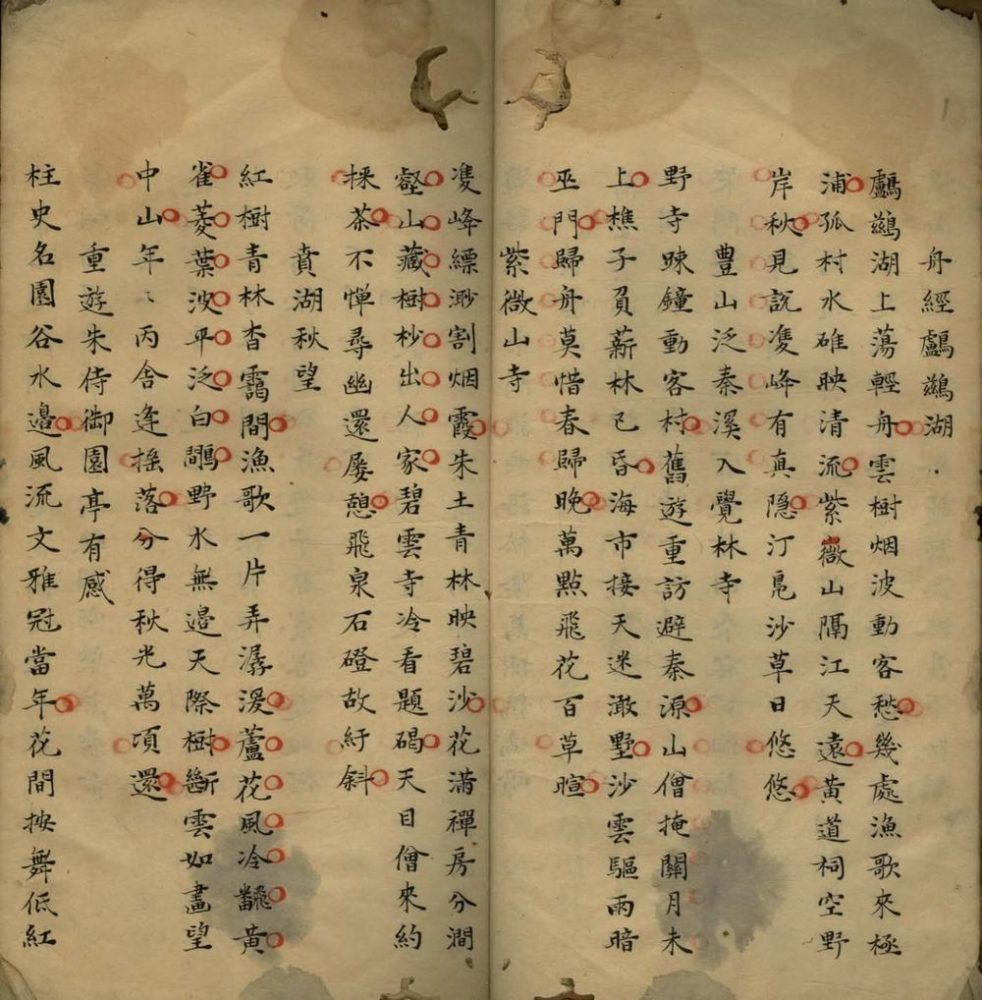 舟經鸕鷀湖
鸕鷀湖上蕩輕舟雲樹烟波動客愁幾處漁歌來極
浦孤村水碓映清流紫薇山隔江天遠黃道祠空野
岸秋見說凌峰有真隐汀鳬沙草日悠悠
豊山泛秦溪入覺林寺
野寺踈鐘動客村舊遊重訪避秦源山僧掩關月未
上樵子負薪林已昏海市接天迷澉墅沙雲驅雨暗
巫門歸舟莫惜春歸晚萬點飛花百草暄
紫微山寺
凌峰縹渺割烟霞朱土青林映碧沙花滿禪房分澗
壑山藏樹杪出人家碧雲寺冷看題碣天目僧來約
採茶不憚尋幽還屡憩飛泉石磴故紆斜
賁湖秋望
紅樹青林杳靄間漁歌一片弄潺湲蘆花風冷飜黃
雀菱葉波平泛白鷳野水無邉天際樹斷雲如畵望
中山年〻丙舍逢摇落分得秋光萬項還
重遊朱侍御園亭有感
柱史名園谷水邉風流文雅冠當年花間按舞低紅